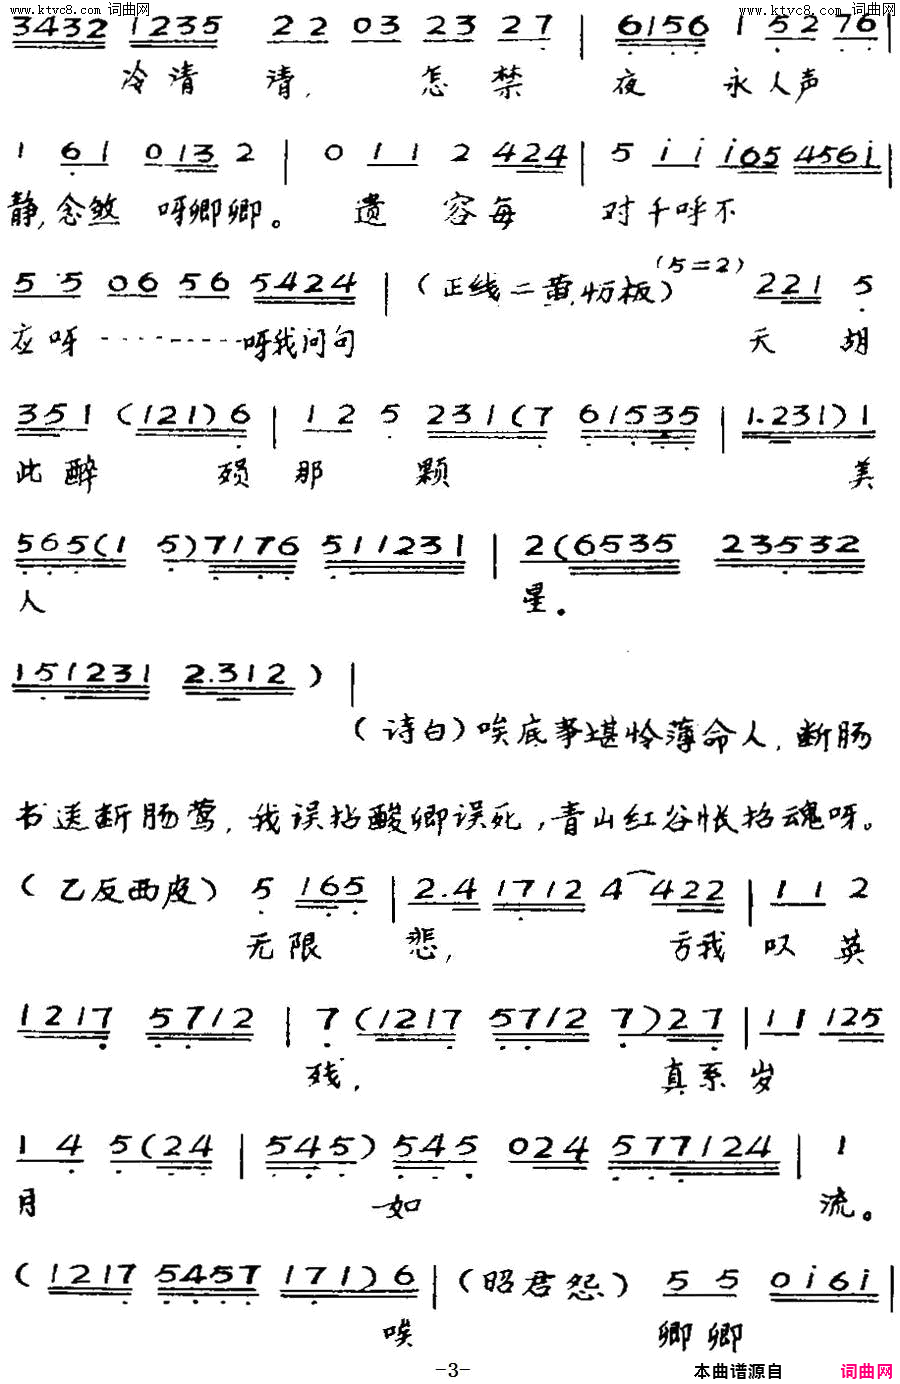 www.ktvc8.com 词曲网 www.ktvc8.com 词曲网
3432 1235 22 03 23 27 | 6156 1 52 76 |
冷清 清, 怎 禁 夜 永人声
1 61 0132 2 | 0 11 2 4224 | 5 i i i65 456i |
静,念煞 呀卿卿。 遗 容每 对千呼不
5 5 06 56 5424 | (正线二黄,慢板) (5=2) 221 5
应呀---------呀我问句 天 胡
351 (121) 6 | 1 2 5 231 (7 61535 | 1.231) 1
此醉 殒那 颗 美
565(1 5)7176 511231 | 2(6535 23532
人 星。
151231 2.312 ) |
(诗白)唉底事堪怜薄命人,断肠
书送断肠莺,我误拈酸卿误死,青山红谷怅招魂呀。
(乙反西皮) 5 165 | 2.4 1712 4 422 | 11 2
无限 悲, 亏我 叹英
1217 5712 | 7 (1217 5712 7) 27 | 11 125
残, 真系岁
1 4 5(24 | 545) 545 024 577124 | 1
月 如 流。
(1217 5457 171) 6 | (昭君怨) 5 5 0i6i |
唉 卿卿
-3- 本曲谱源自 词曲网